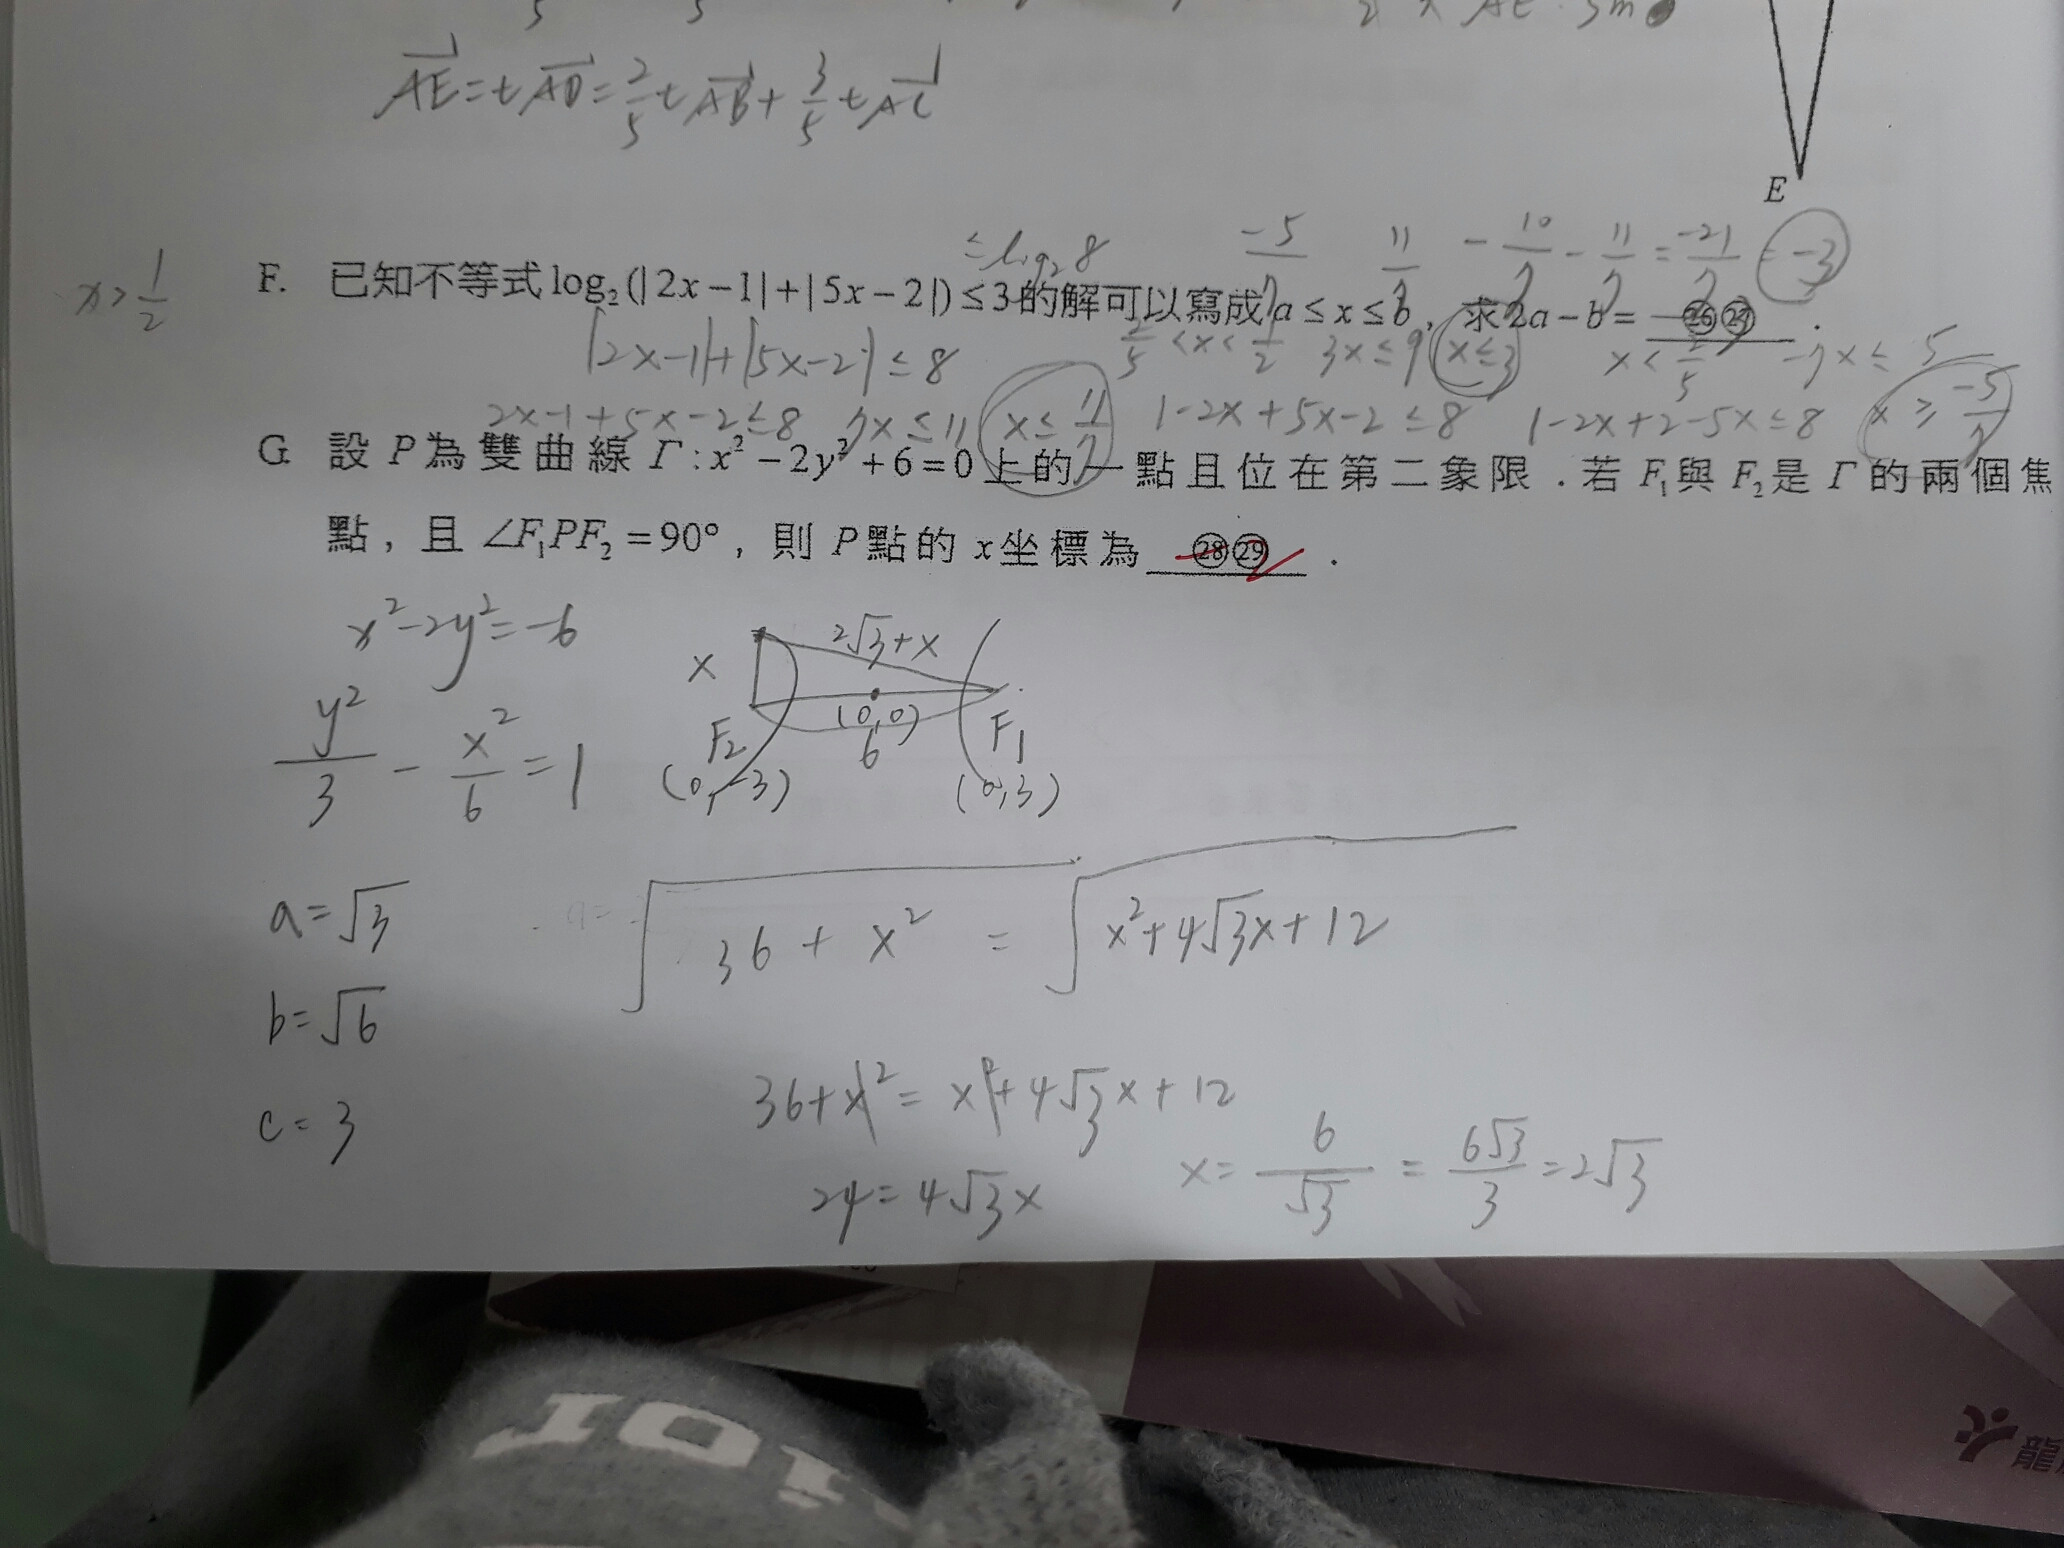 AE=tAD=2/5tAB+3/5tAC
E
x>1/2
≤log₂8
-5/7 11/7 -10/7-11/7=-21/7=-3
F. 已知不等式log₂(|2x-1|+|5x-2|)≤3的解可以寫成a≤x≤b,求2a-b=㉖㉗.
|2x-1|+|5x-2|≤8 2/5<x<1/2 3x≤9 x≤3 x<2/5 -7x≤5
2x-1+5x-2≤8 7x≤11 x≤11/7 1-2x+5x-2≤8 1-2x+2-5x≤8 x≥-5/7
G. 設P為雙曲線Γ:x²-2y²+6=0上的一點且位在第二象限.若F₁與F₂是Γ的兩個焦
點,且∠F₁PF₂=90°,則P點的x坐標為㉘㉙.
x²-2y²=-6
y²/3-x²/6=1
x
2√3+x
(0,0)
6
F₂
F₁
(0,-3)
(0,3)
a=√3
b=√6
c=3
√36+x²=√x²+4√3x+12
36+x²=x²+4√3x+12
24=4√3x
x=6/√3=6√3/3=2√3
龍